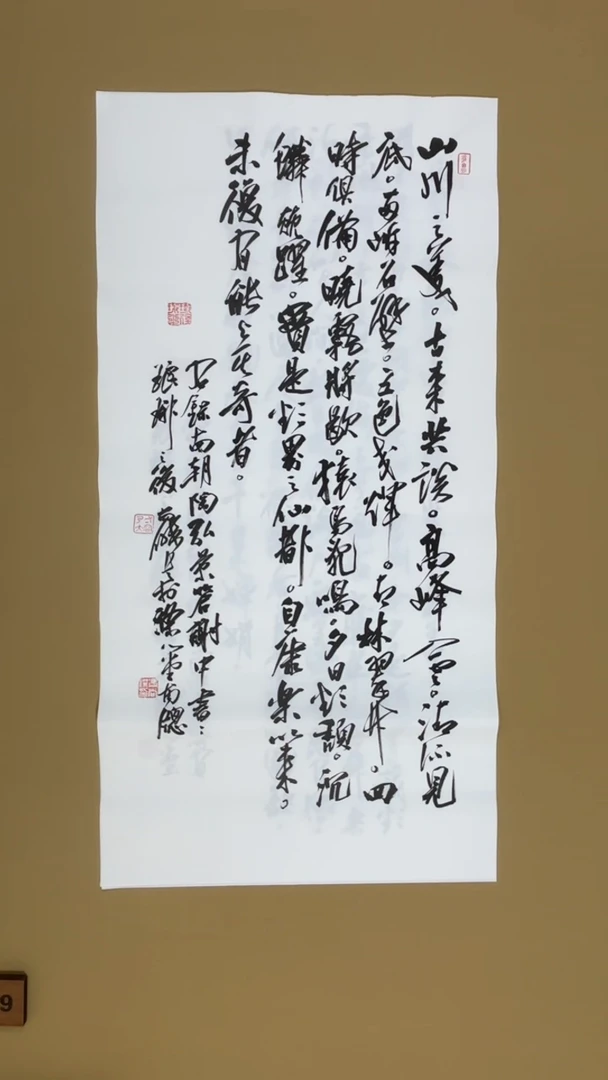 山川之美。古來共談。高峰入雲。清流見
底。兩岸石壁。五色交輝。青林翠竹。四
時俱備。曉霧將歇。猿鳥亂鳴。夕日欲頹。沉
鱗競躍。實是欲界之仙都。自康樂以來。
未復有能與其奇者。
右錄南朝陶弘景答謝中書書
9